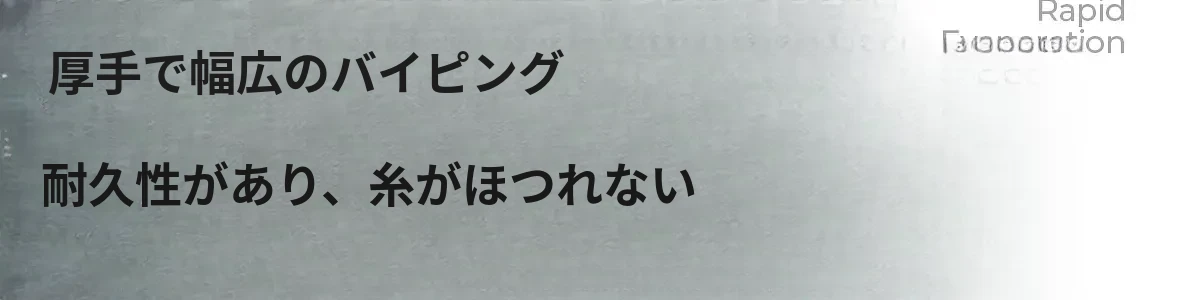 Rapid
厚手で幅広のバイピング
耐久性があり、糸がほつれない